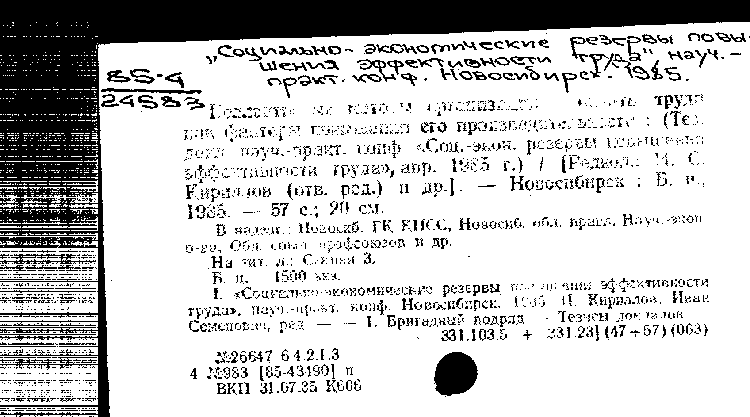 „Социально-экономические резервы повы-
шения эффективности труда", науч.-
практ. конф. Новосибирск. 1985.
85-4
24583
организации труда
как факторы повышения его производительности : (Тез.
докл. науч.-практ. конф. «Соц.-экон. резервы повышения
эффективности труда», апр. 1985 г.) / [Редкол.: И. С.
Кириллов (отв. ред.) и др.]. — Новосибирск : Б. и.,
1985. — 57 с.; 20 см.
В надзаг.: Новосиб. ГК КПСС, Новосиб. обл. правл. Науч.-экон.
о-ва, Обл. совет профсоюзов и др.
На тит. л.: Секция 3.
Б. ц. 1500 экз.
1. «Социально-экономические резервы повышения эффективности
труда», науч.-практ. конф. Новосибирск. 1985 II. Кириллов, Иван
Семенович, ред — — 1. Бригадный подряд — Тезисы докладов
331.103.5 + 331.23](47+57)(063)
№26647 6.4.2.1.3
4 №983 [85-43190] п
ВКП 31.07.85 К606